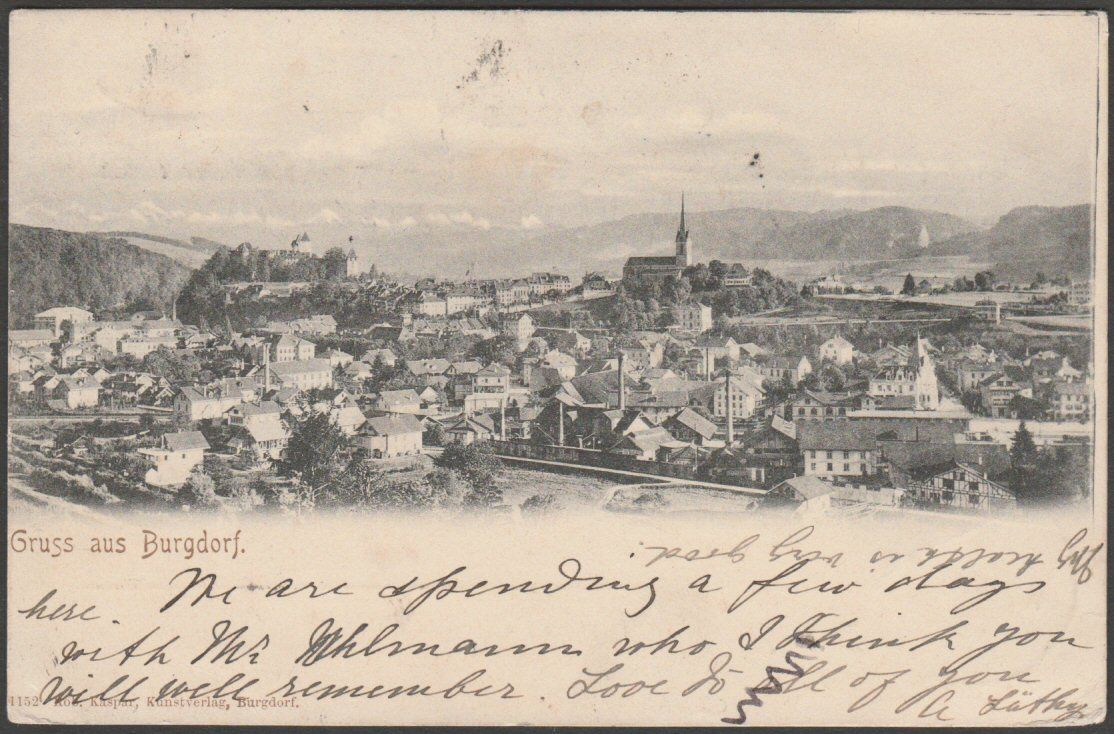 Gruss aus Burgdorf.
My health is very good.
We are spending a few days
here.
with Mr Uhlmann who I think you
will well remember. Love to all of you
A Lüthy
1152 Rob. Kaspar, Kunstverlag, Burgdorf.